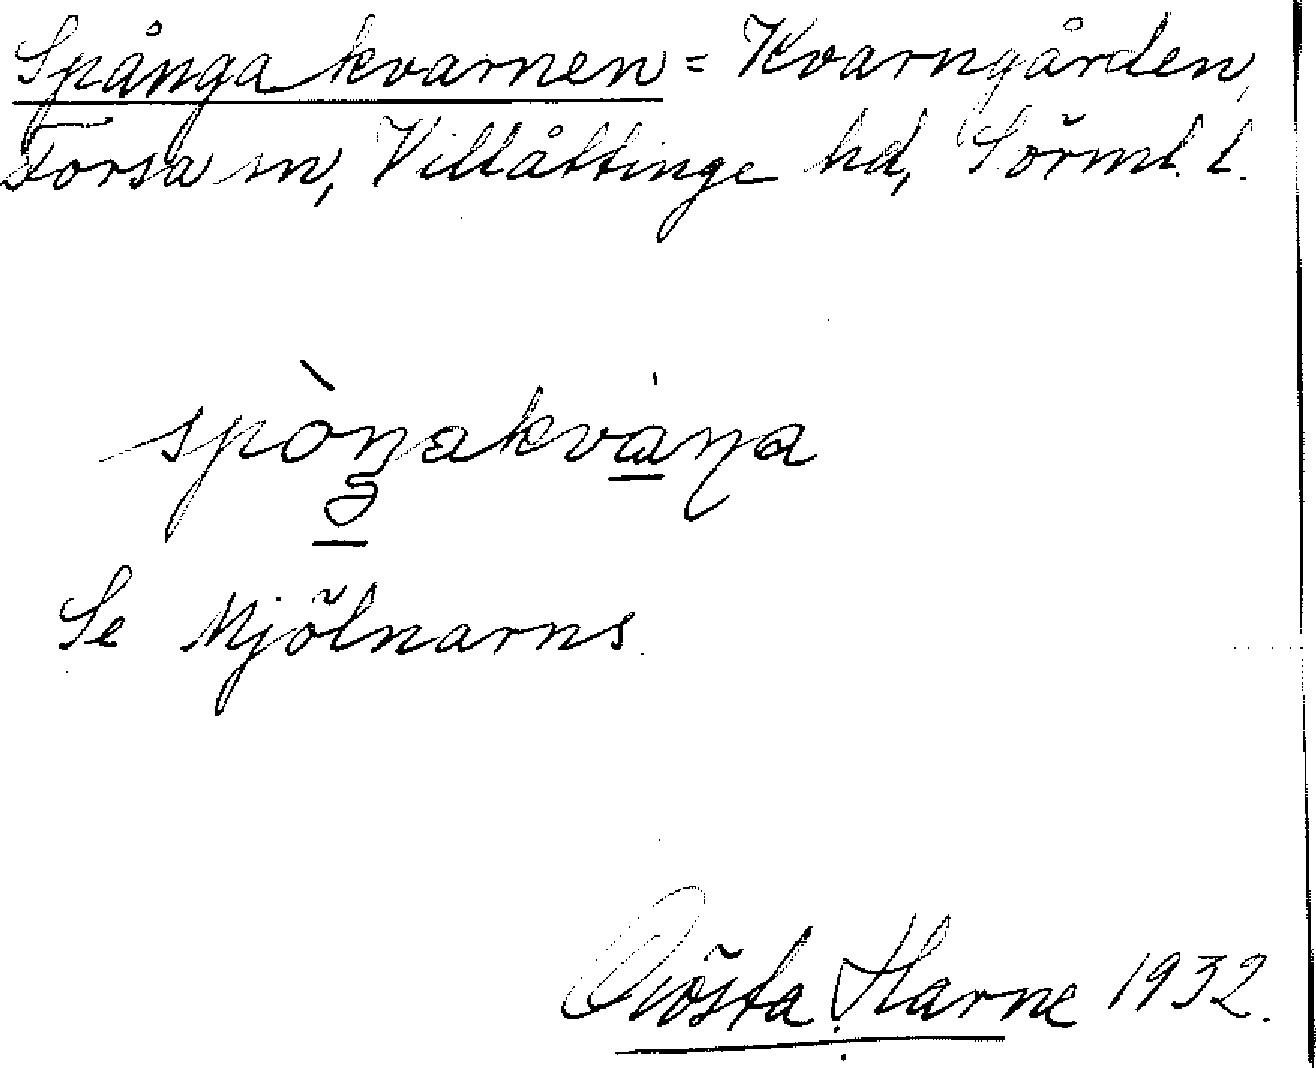 Spånga kvarnen = Kvarngården,
Forsa sn, Villåttinge hd, Sörml. l.
spòŋakvàɳa
Se Mjölnarns.
Gösta Harne 1932.